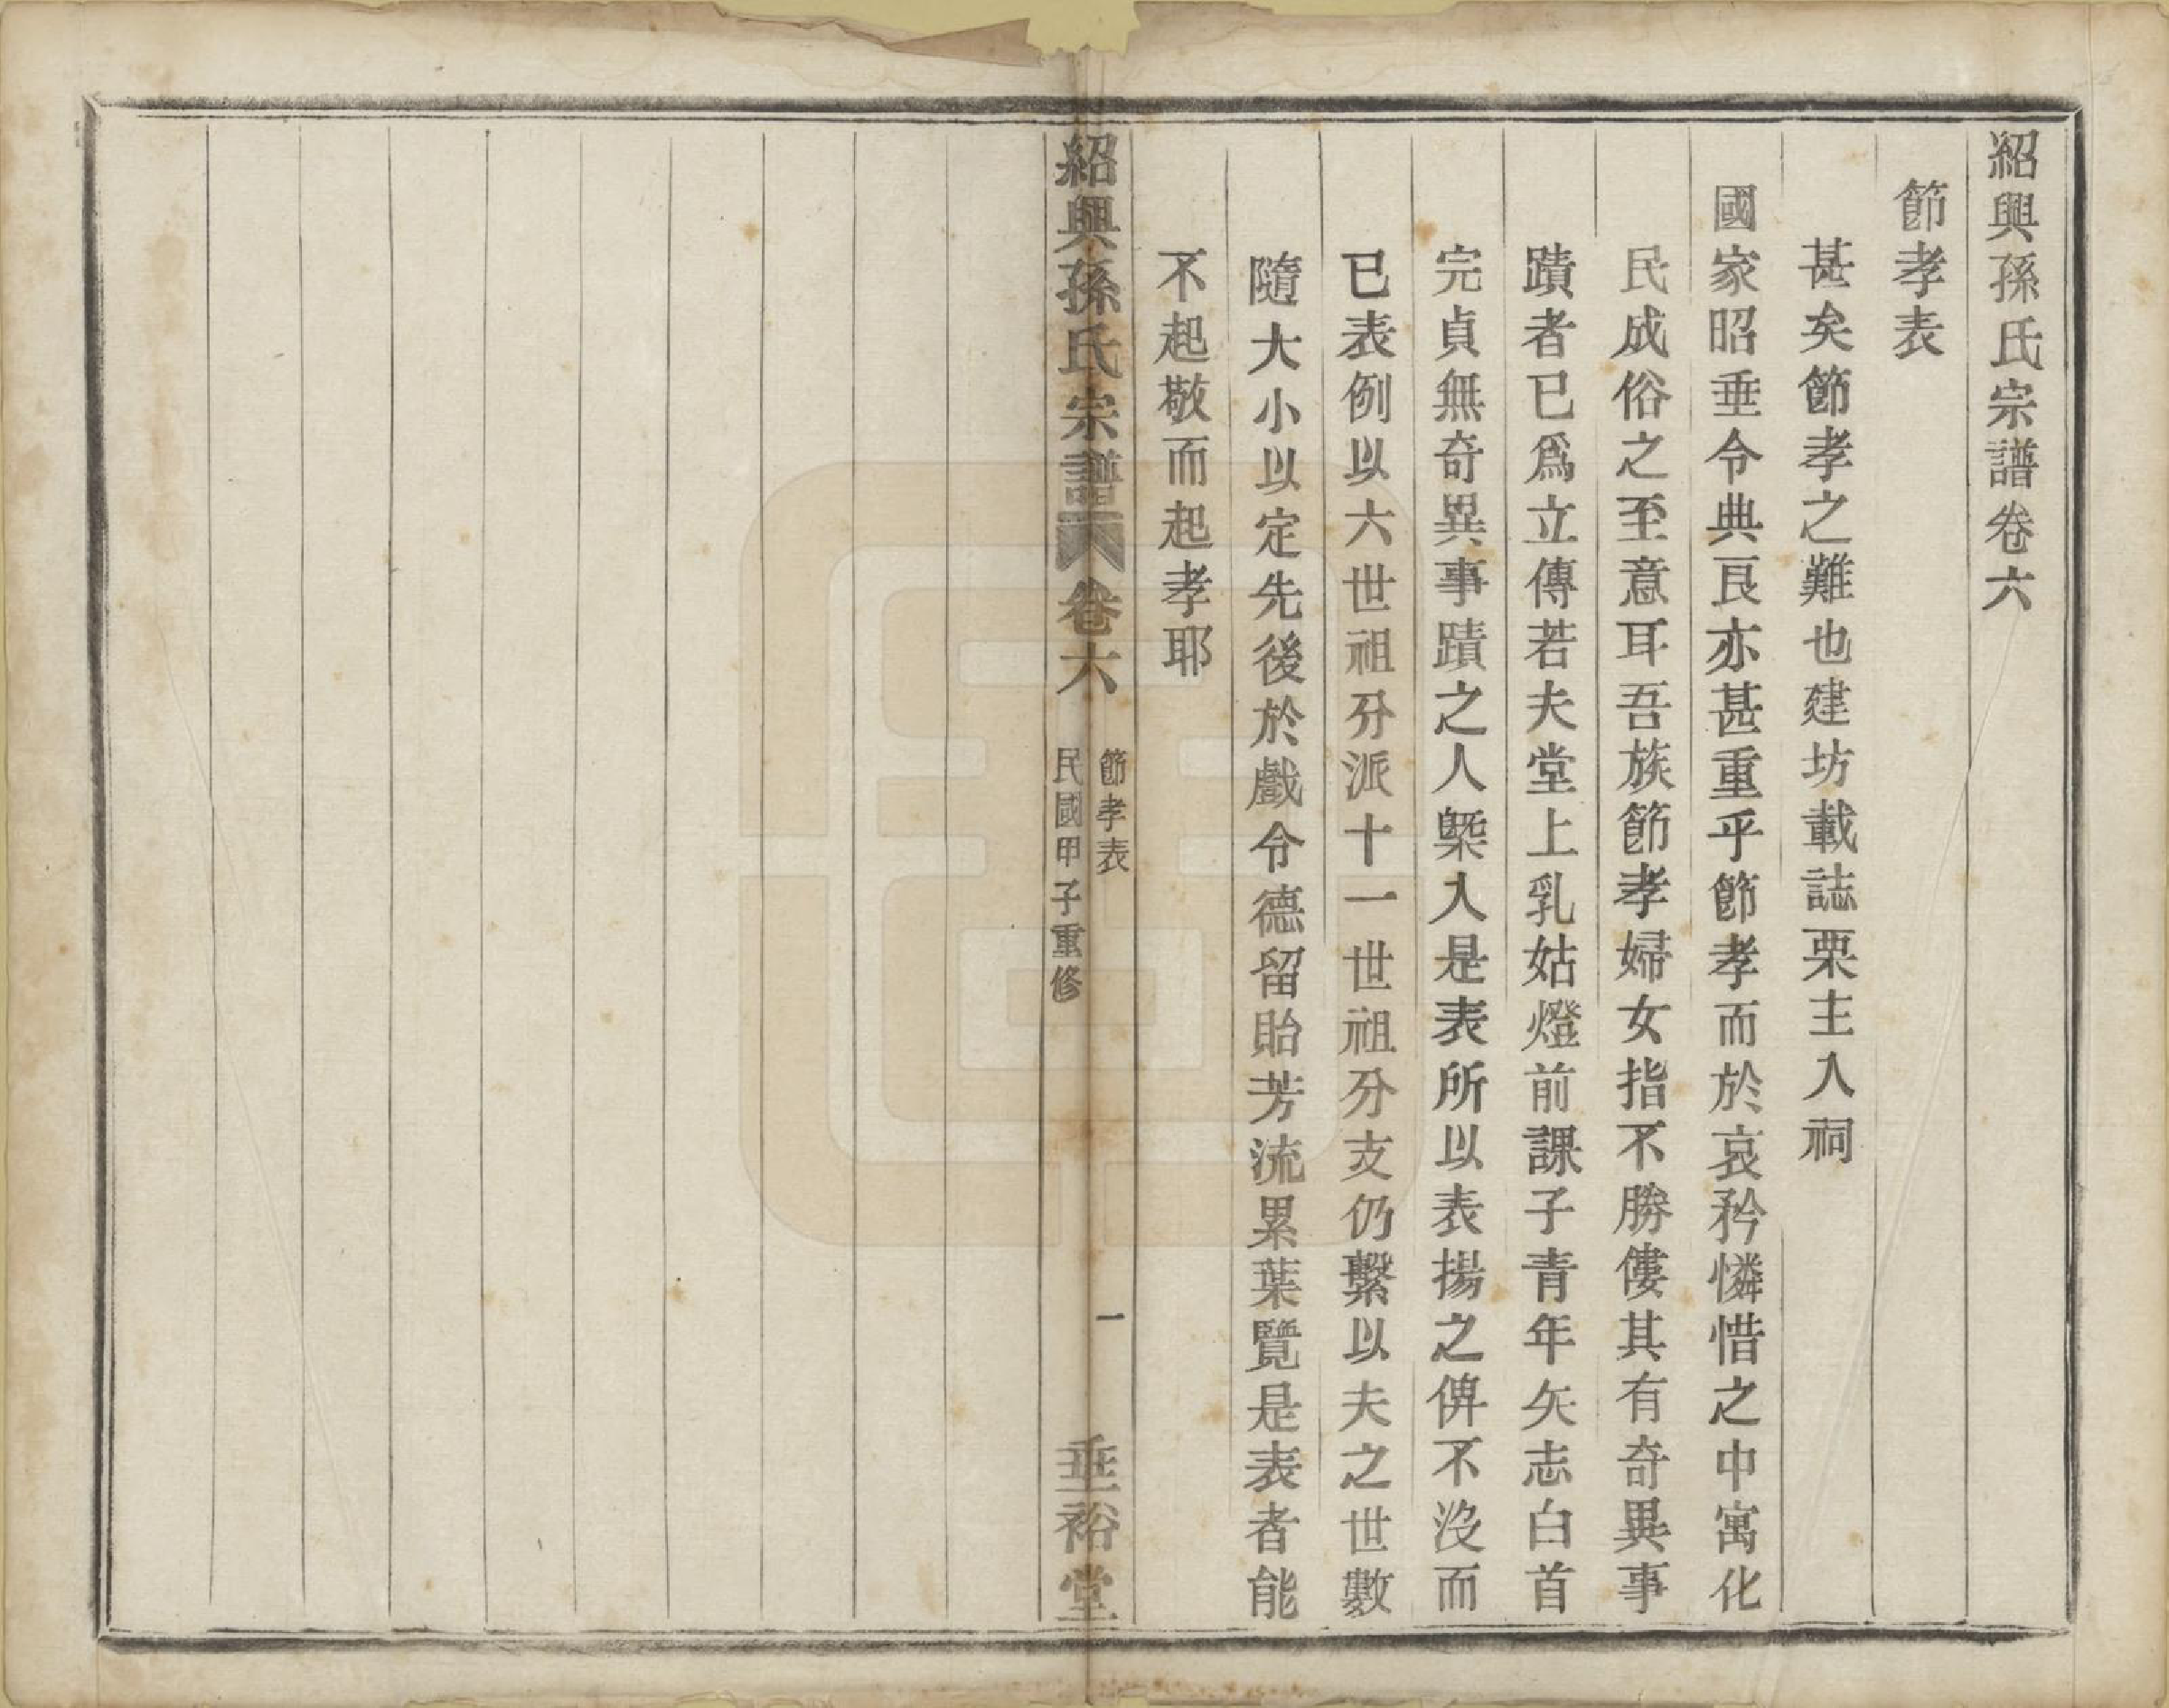 紹興孫氏宗譜卷六
節孝表
甚矣節孝之難也建坊載誌栗主入祠
國家昭垂令典良亦甚重乎節孝而於哀矜憐惜之中寓化
民成俗之至意耳吾族節孝婦女指不勝僂其有奇異事
蹟者已爲立傳若夫堂上乳姑燈前課子青年矢志白首
完貞無奇異事蹟之人槩入是表所以表揚之俾不沒而
已表例以六世祖分派十一世祖分支仍繫以夫之世數
隨大小以定先後於戲令德留貽芳流累葉覽是表者能
不起敬而起孝耶
紹興孫氏宗譜
卷六
節孝表
民國甲子重修
一
垂裕堂